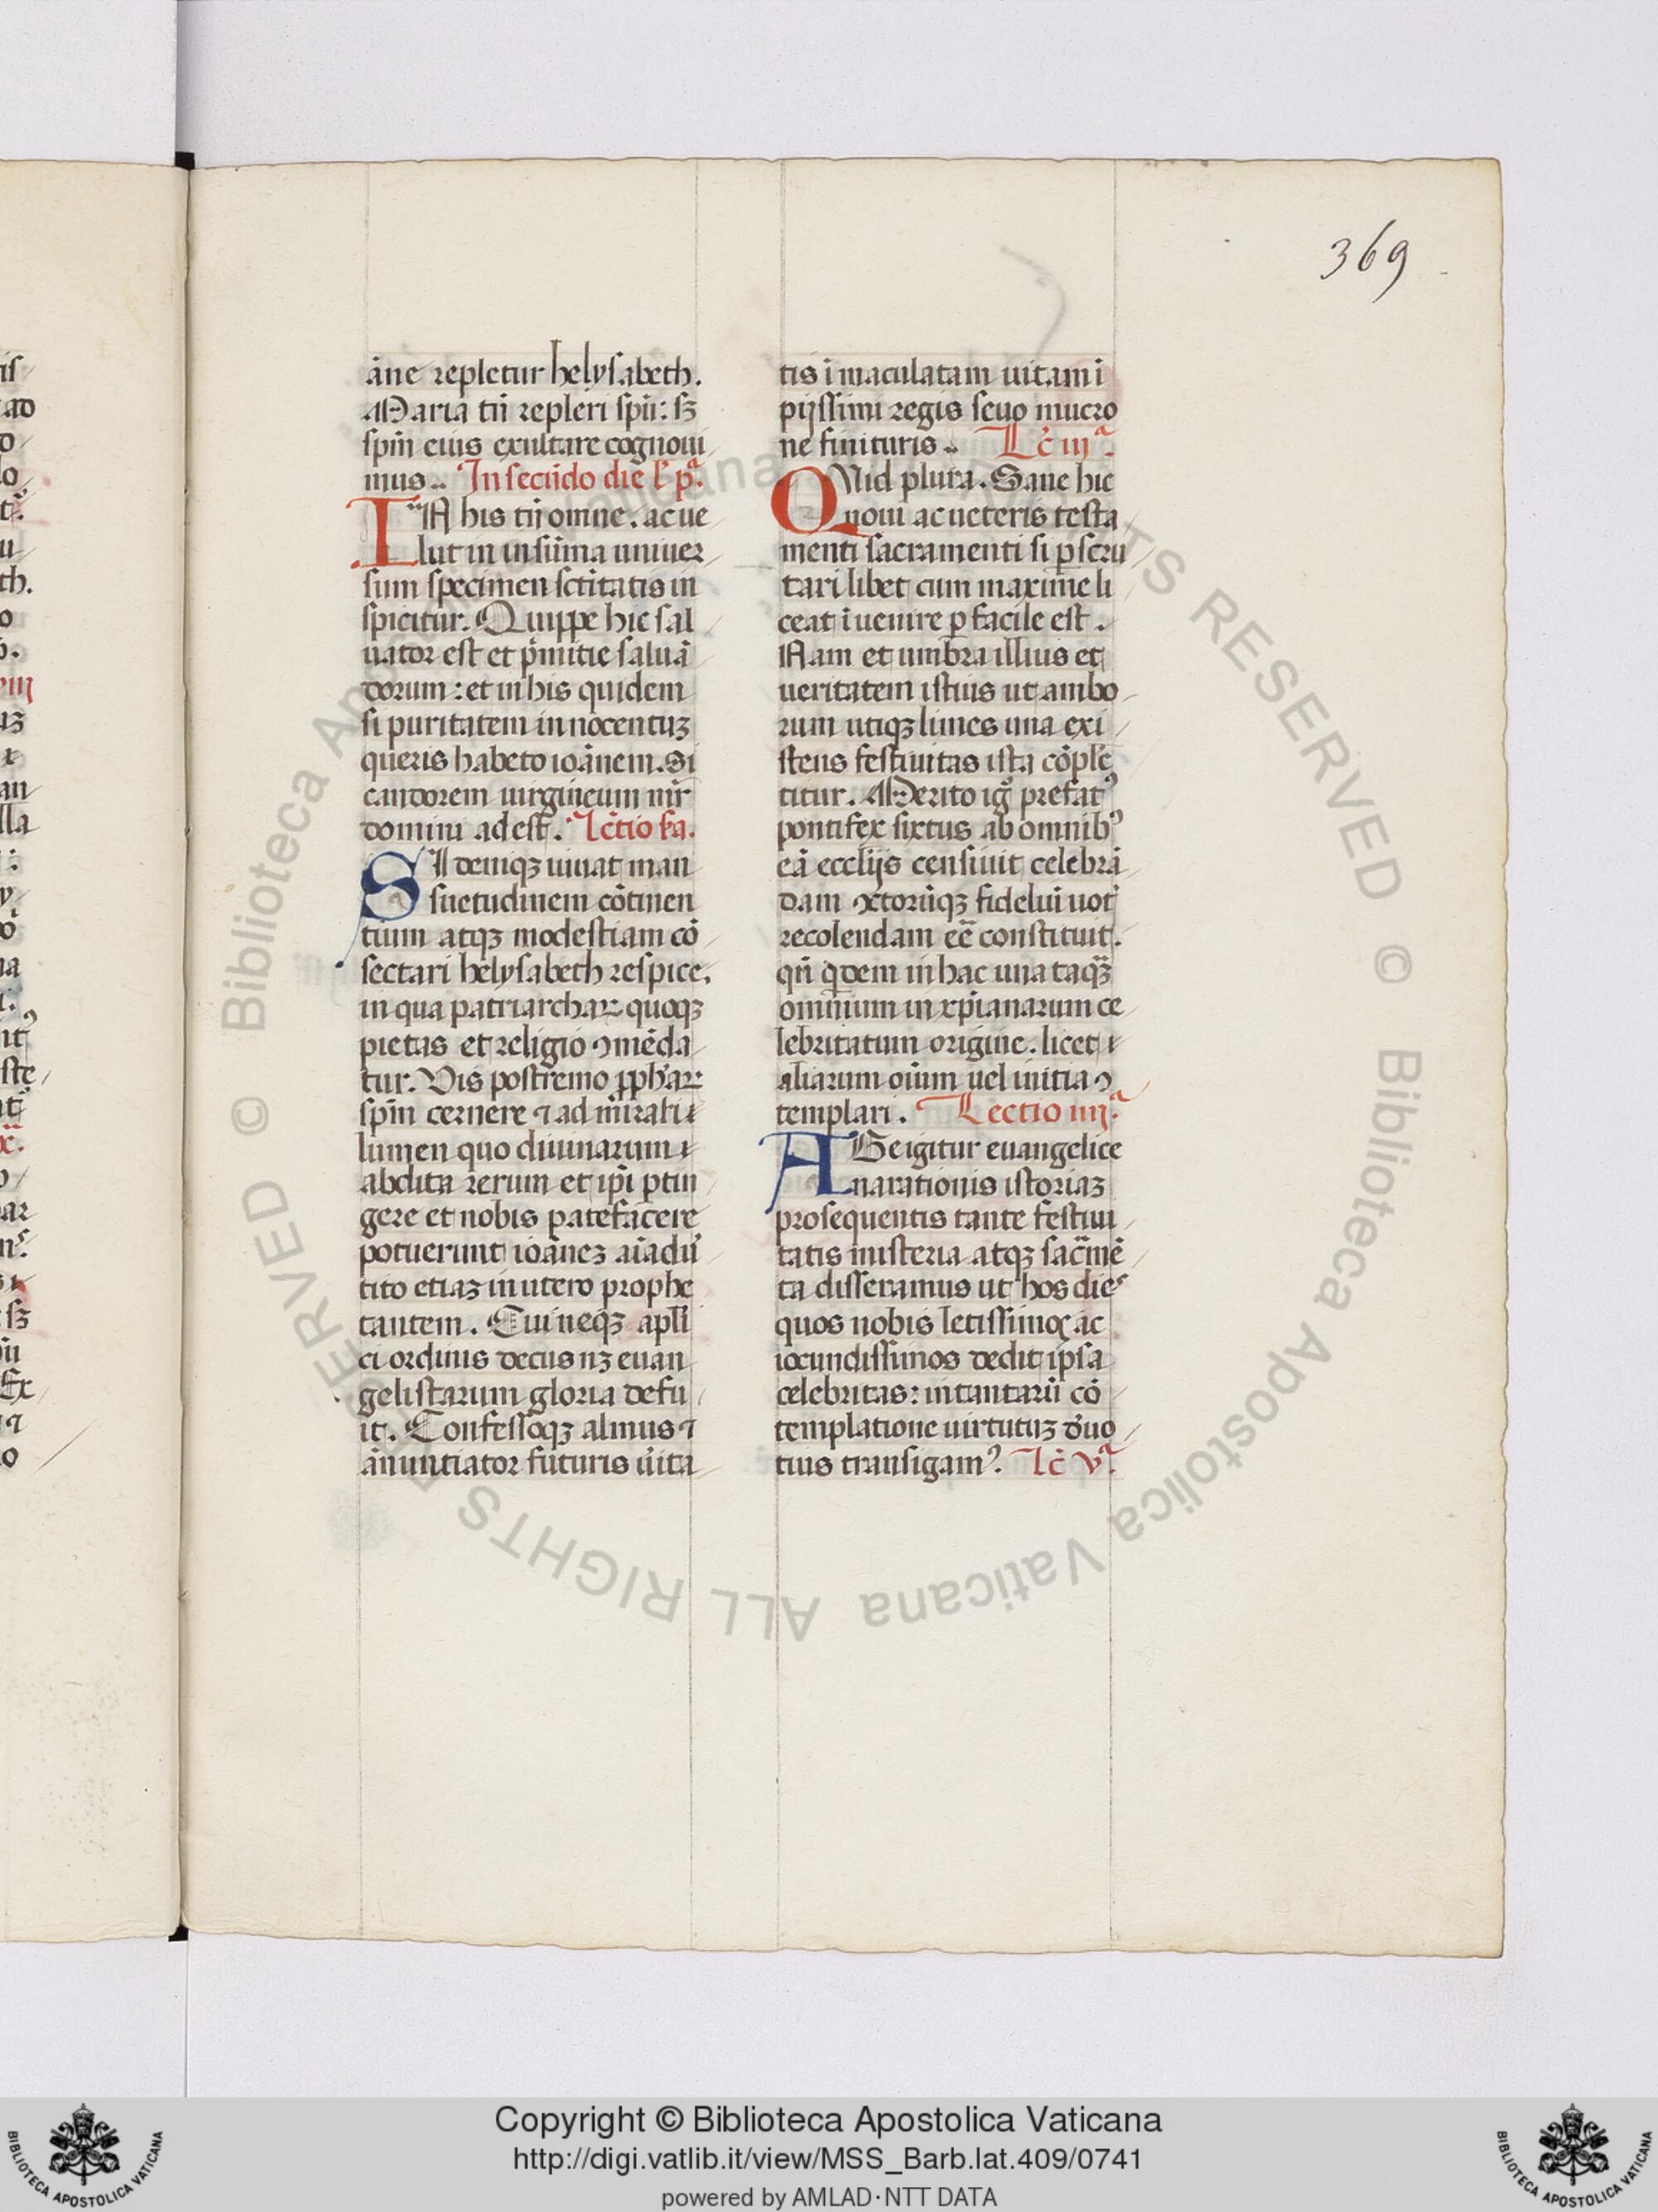 369
āne repletur helysabeth.
Maria tn̄ repleri spū: sꝫ
spm̄ eius exultare cognoui
mus.. In secūdo die l' pᵃ.
IN his tn̄ omne. ac ue
lut in un̄ sūma uniuer
sum specimen sc̄titatis in
spicitur. Quippe hic sal
uator est et p̄mitie saluā
dorum: et in his quidem
si puritatem innocentiꝫ
queris habeto ioānem. Si
candorem uirgineum mr̄
domini adest. lc̄tio ẜa.
SI deniqꝫ uiuat man
suetudinem cōtinen
tium atqꝫ modestiam cō
sectari helysabeth respice.
in qua patriarchaꝝ quoqꝫ
pietas et religio ꝯmēda
tur. Vis postremo ꝓphaꝝ
spm̄ cernere ⁊ ad mirabile
lumen quo diuinarum
abdita rerum et ip̄i ptin
gere et nobis patefacere
potuerunt ioāneꝫ aīadu'
tito etiaꝫ in utero prophe
tantem. Cui neqꝫ apl̄i
ci ordinis decus nꝫ euan
gelistarum gloria defu
it. Confessoqꝫ almus ⁊
ānuntiator futuris uīta
tis īmaculatam uitam ī
pijssimi regis seuo mucro
ne finituris.. Lc̄ iijᵃ.
QVid plura. Sane hic
noui ac ueteris testa
menti sacramenti si ꝑscru
tari libet cum maxime li
ceat īuenire ꝑ facile est.
Nam et umbra illius et
ueritatem istius ut ambo
rum utiqꝫ limes una exi
stens festiuitas ista cōple
titur. Merito ig' prefatꝰ
pontifex sixtus ab omnibꝰ
eā eccl̄ijs censiuit celebrā
dam ꝯctorūqꝫ fideluī uot'
recolendam eē constituit.
qn̄ q̄dem in hac una taqꝫ̄
omnium in xp̄ianarum ce
lebritatum origine. licet
aliarum oīum uel initia ꝯ
templari. Lectio iiijᵃ.
AGe igitur euangelice
narationis istoriaꝫ
prosequentis tante festiui
tatis misteria atqꝫ sac̄mē
ta disseramus ut hos dies
quos nobis letissimos ac
iocundissimos dedit ipsa
celebritas: in tantarū cō
templatione uirtutuꝫ d'uo
tius transigamꝰ. lc̄ vᵃ.
© Biblioteca Apostolica Vaticana ALL RIGHTS RESERVED
Copyright © Biblioteca Apostolica Vaticana
http://digi.vatlib.it/view/MSS_Barb.lat.409/0741
powered by AMLAD·NTT DATA
BIBLIOTECA APOSTOLICA VATICANA
BIBLIOTECA APOSTOLICA VATICANA